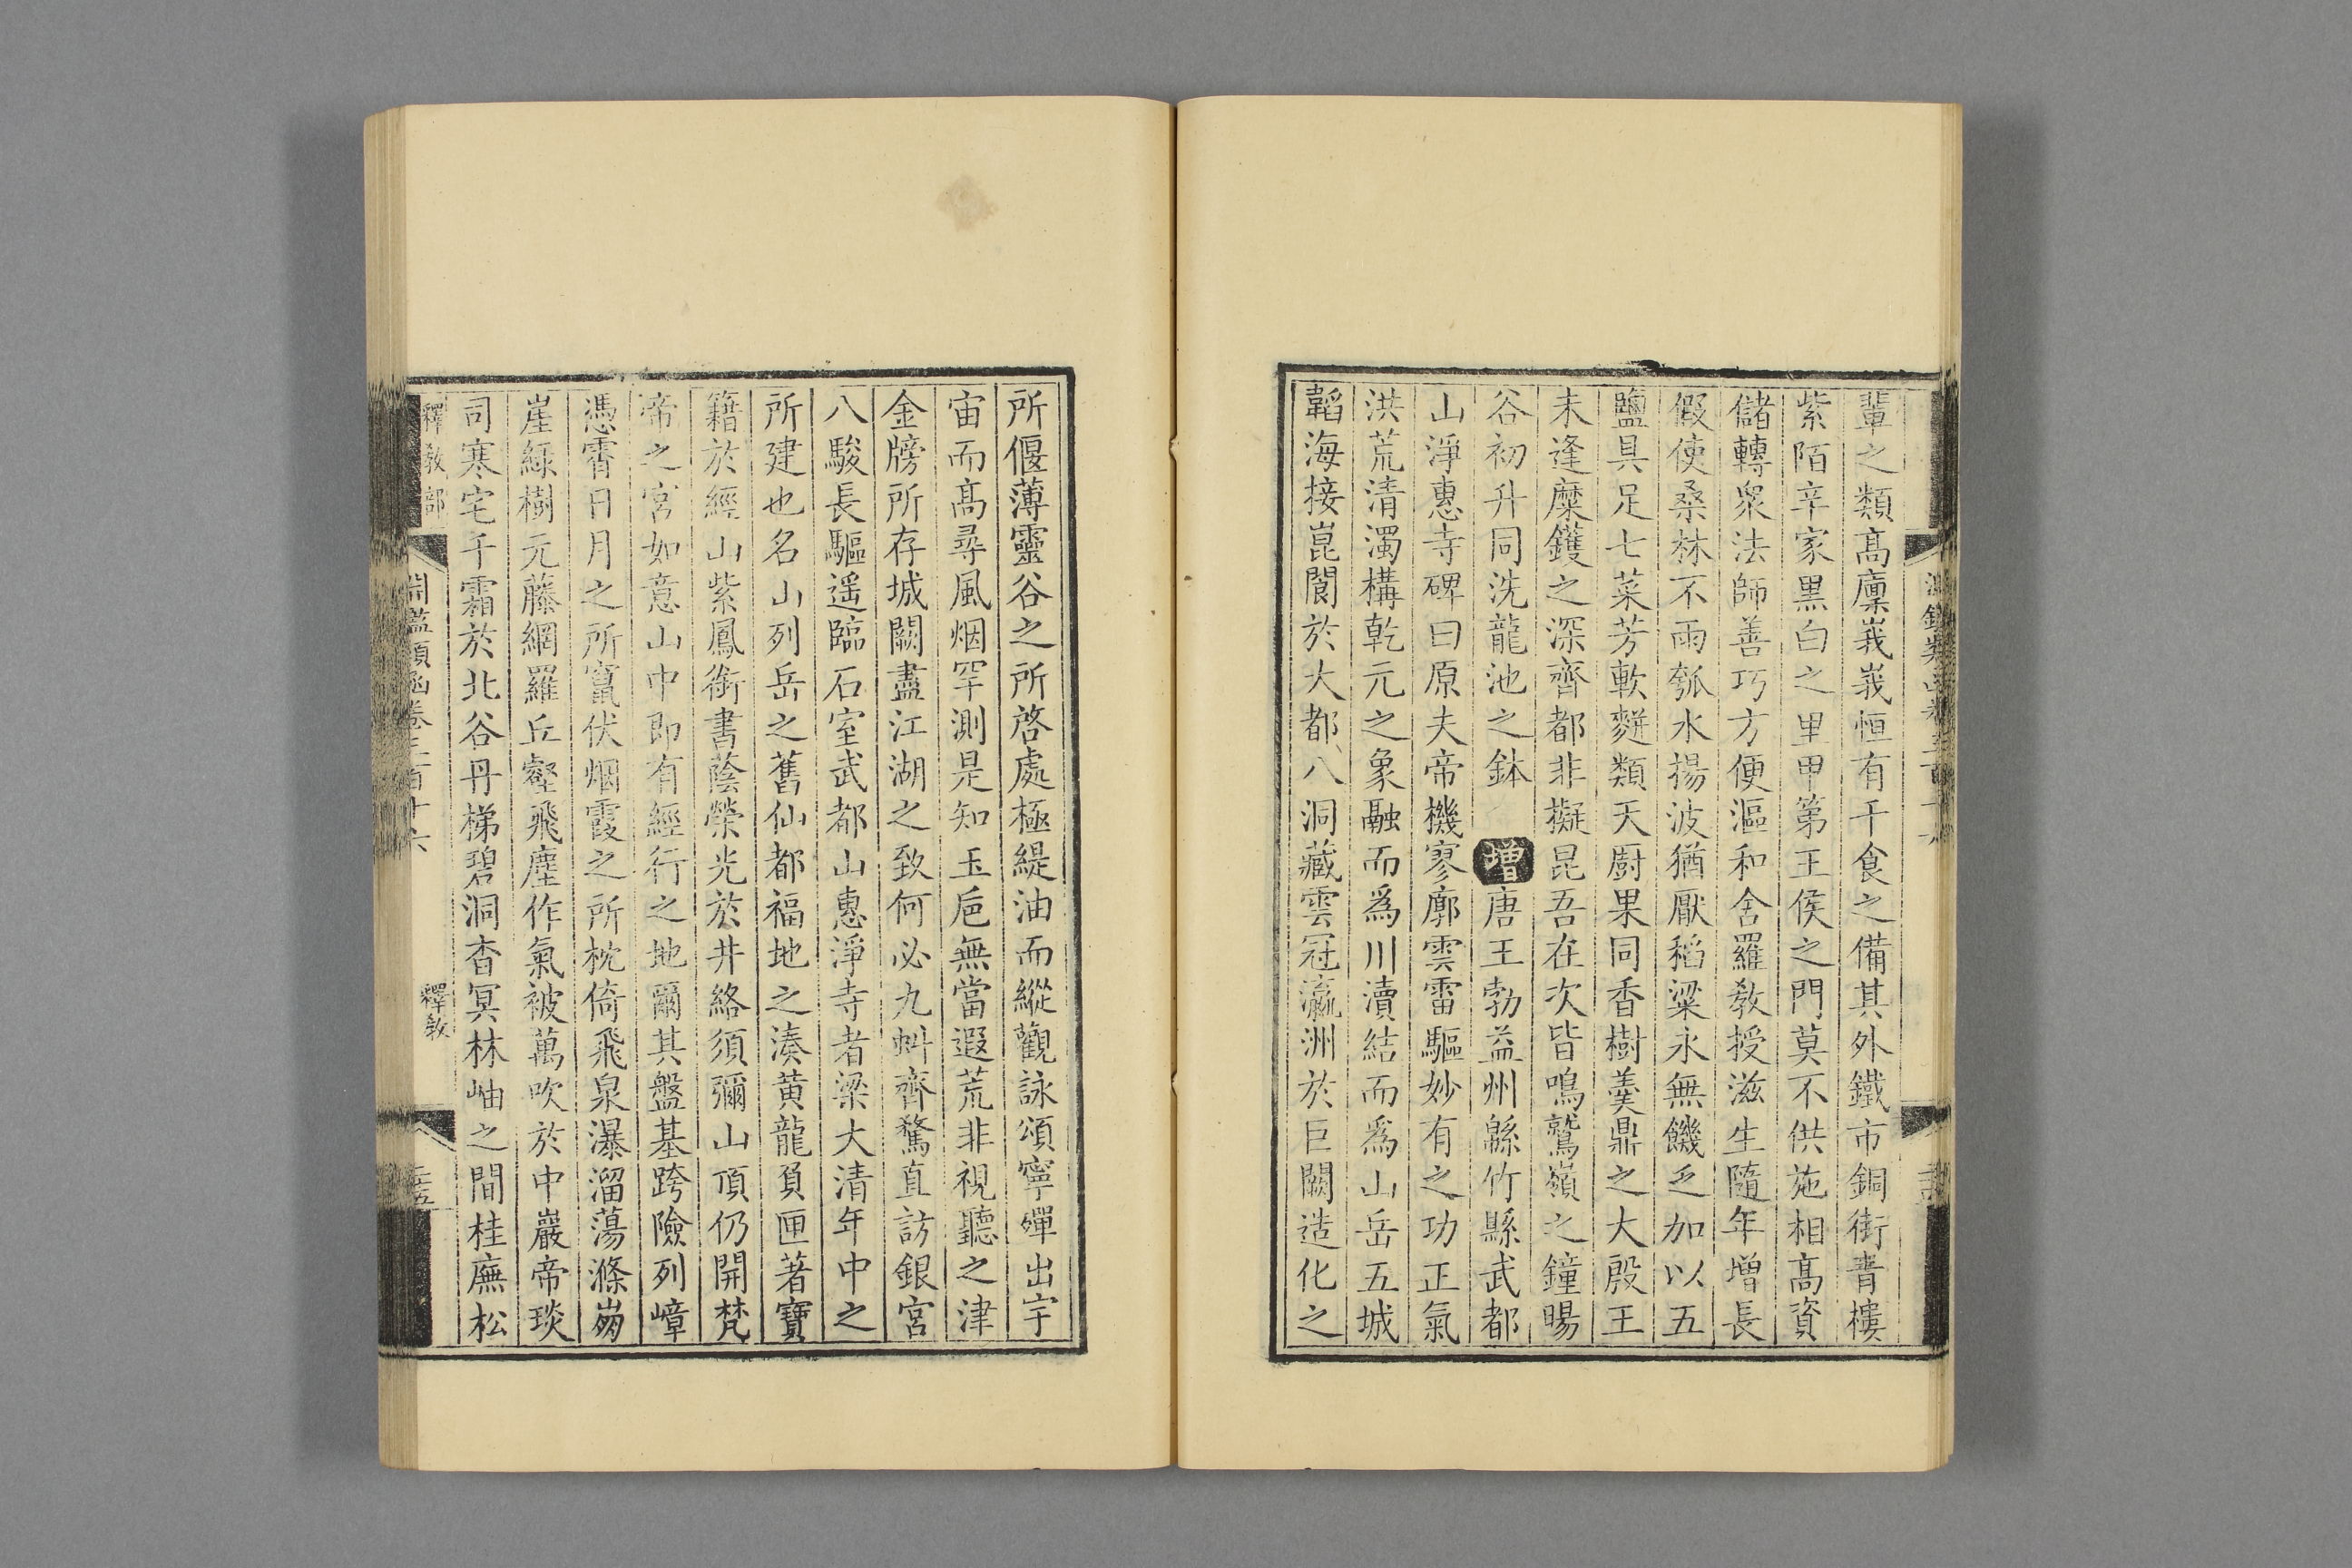 輩之類高廩峩峩恒有千食之備其外鐵市銅街青樓
紫陌辛家黒白之里甲第王侯之門莫不供施相高資
儲轉衆法師善巧方便漚和舍羅敎授滋生隨年增長
假使桑林不雨瓠水揚波猶厭稻粱永無饑乏加以五
鹽具足七菜芳軟麰類天廚果同香樹羮鼎之大殷王
未逢糜鑊之深齊都非擬昆吾在次皆鳴鷲嶺之鐘暘
谷初升同洗龍池之鉢 增唐王勃益州緜竹縣武都
山淨惠寺碑曰原夫帝機寥廓雲雷驅妙有之功正氣
洪荒清濁構乾元之象融而爲川瀆結而爲山岳五城
韜海接崑閬於大都八洞藏雲冠瀛洲於巨闕造化之
所偃薄靈谷之所啓處極緹油而縱觀詠頌寧殫出宇
宙而高尋風烟罕測是知玉巵無當遐荒非視聽之津
金牓所存城闕盡江湖之致何必九虯齊騖直訪銀宮
八駿長驅遥臨石室武都山惠淨寺者梁大清年中之
所建也名山列岳之舊仙都福地之湊黄龍負匣著寶
籍於經山紫鳳銜書蔭榮光於井絡須彌山頂仍開梵
帝之宮如意山中即有經行之地爾其盤基跨險列嶂
憑霄日月之所竄伏烟霞之所枕倚飛泉瀑溜蕩滌崗
崖緑樹元藤網羅丘壑飛塵作氣被萬吹於中巖帝琰
司寒宅千霜於北谷丹梯碧洞杳冥林岫之間桂廡松
釋敎部
淵鑑類函卷三百十六
釋敎
三五